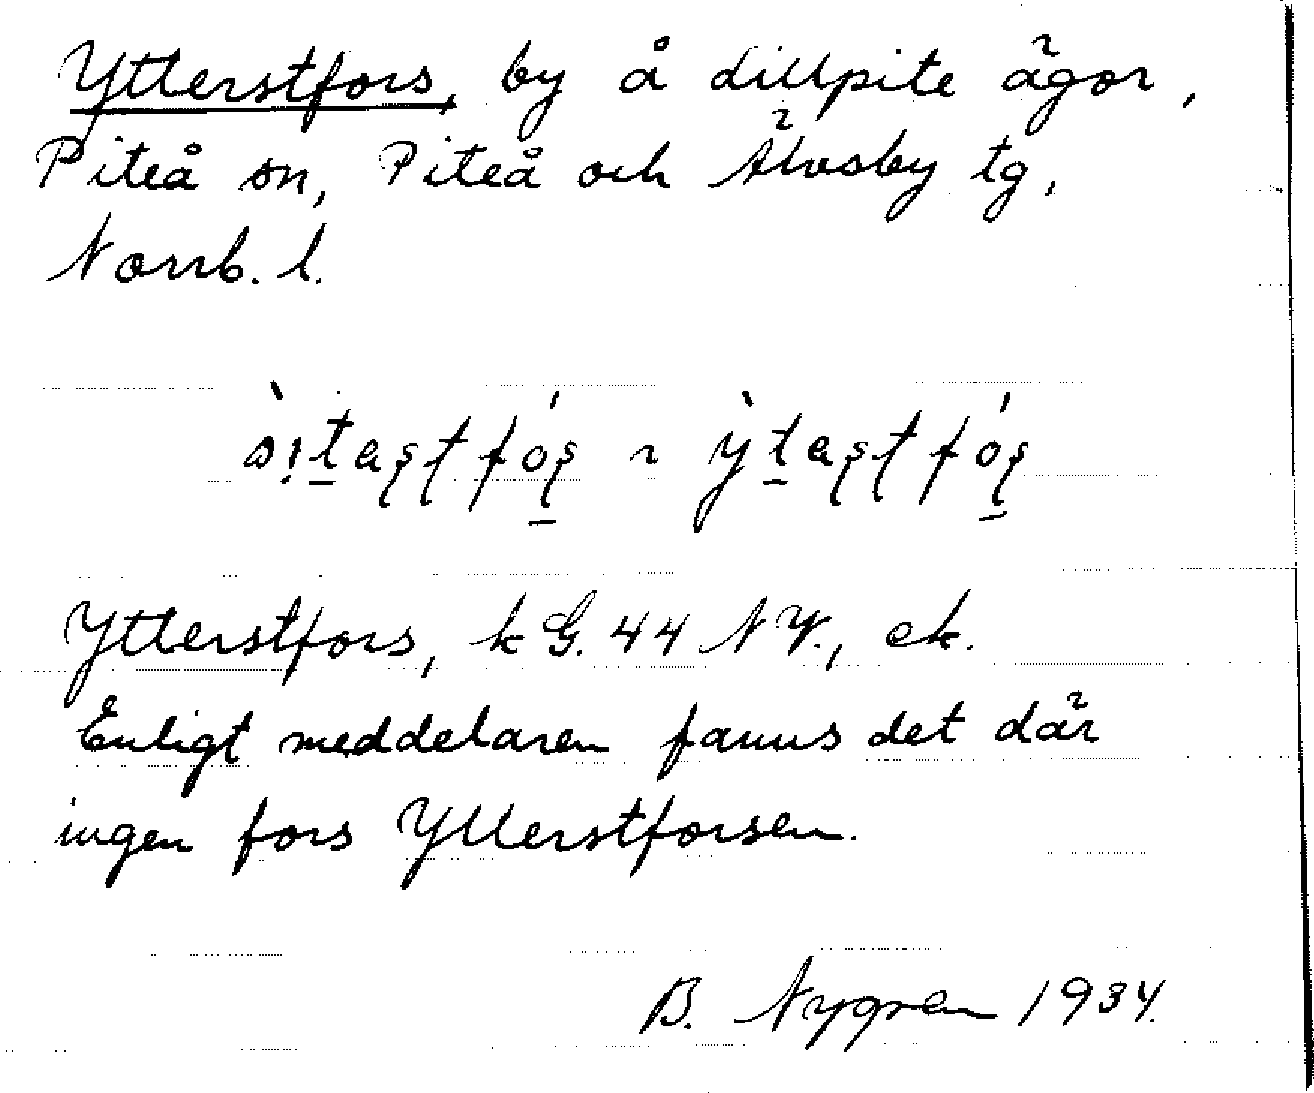 Ytterstfors, by å Lillpite ägor,
Piteå sn, Piteå och Älvsby tg,
Norrb. l.
Ytterstfors, k G. 44 NV., ek.
Enligt meddelaren fanns det där
ingen fors Ytterstforsen.
B. Nygren 1934.